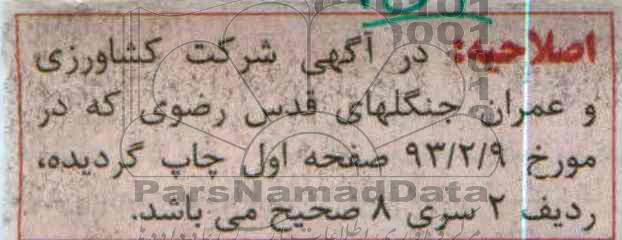 اصلاحیه: در آگهی شرکت کشاورزی
و عمران جنگلهای قدس رضوی که در
مورخ ۹۳/۲/۹ صفحه اول چاپ گردیده،
ردیف ۲ سری ۸ صحیح می باشد.
ParsNamadData